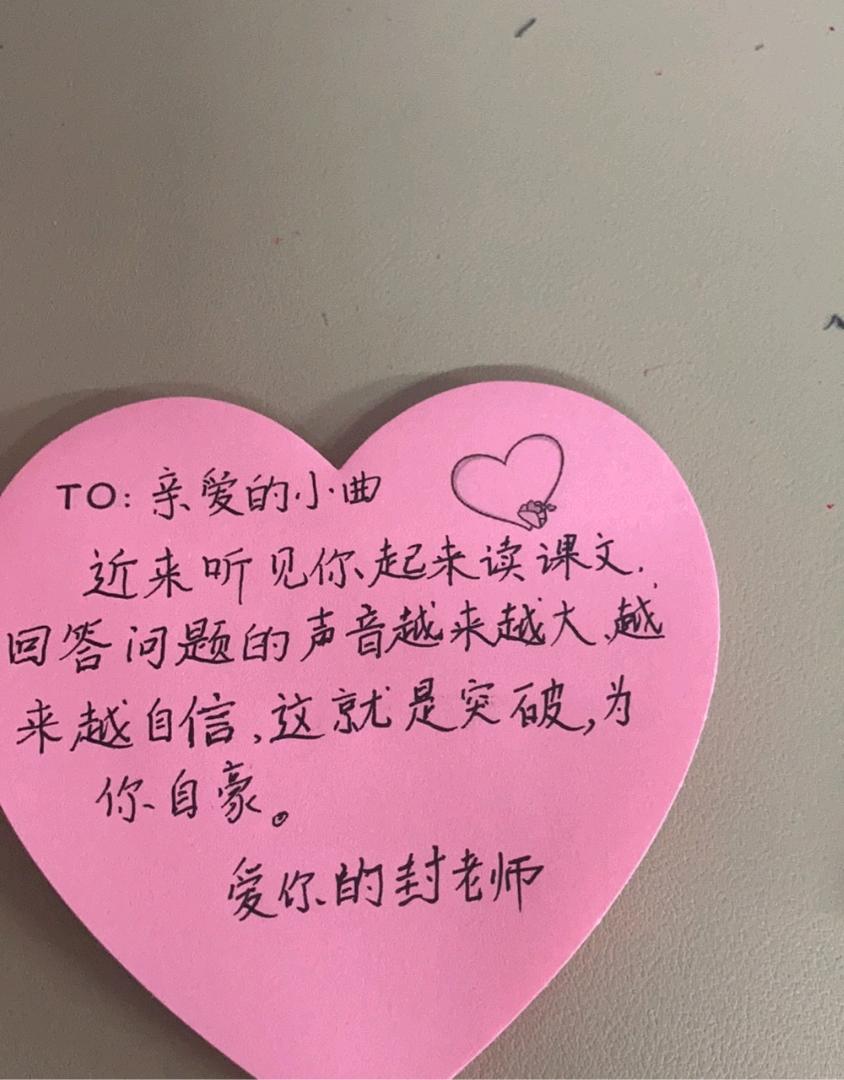 TO: 亲爱的小曲
近来听见你起来读课文、
回答问题的声音越来越大、越
来越自信,这就是突破,为
你自豪。
爱你的封老师